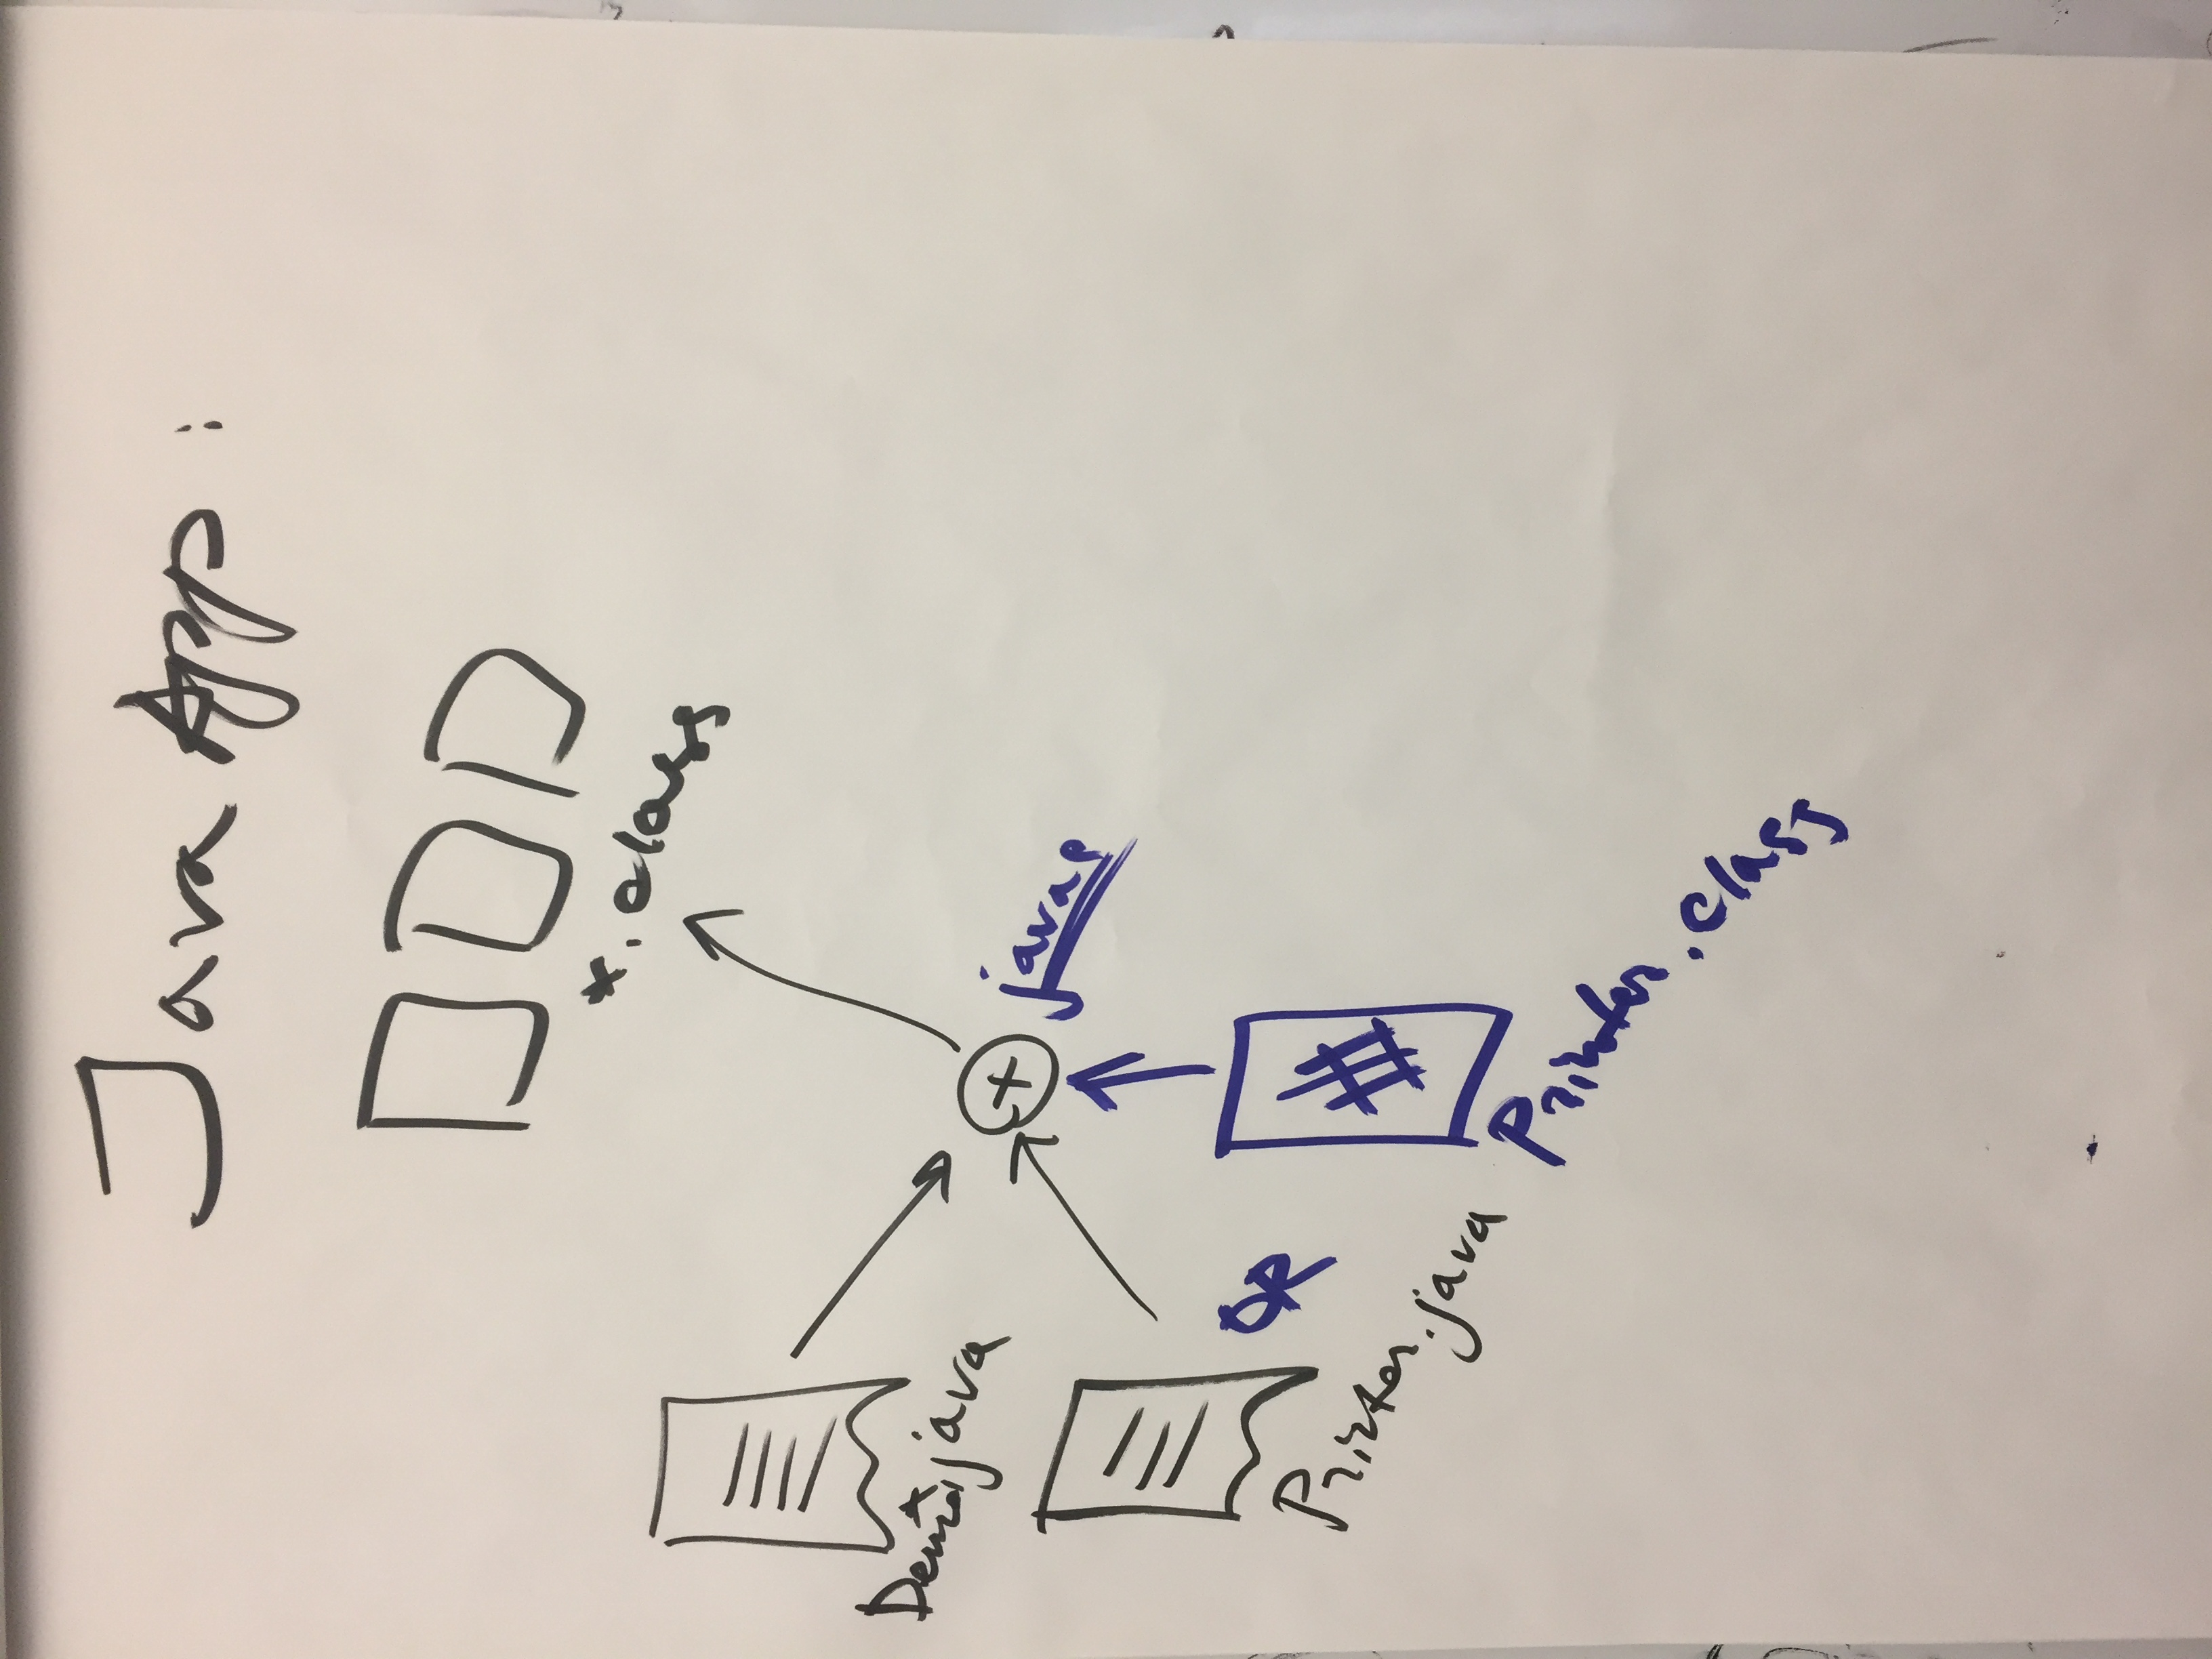 Java App :
*.class
Demo.java
+
javac
Printer.java
OR
Printer.class